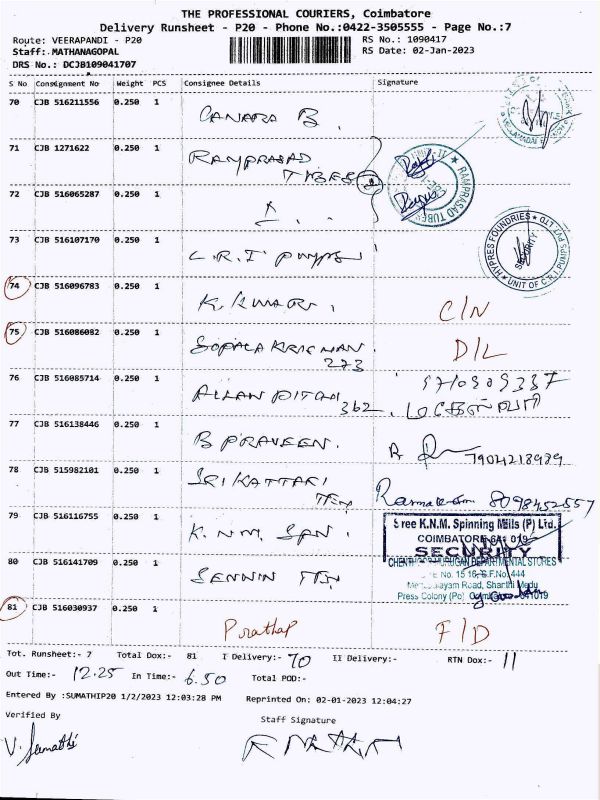 THE PROFESSIONAL COURIERS, Coimbatore
Delivery Runsheet - P20 - Phone No.:0422-3505555 - Page No.:7
Route: VEERAPANDI - P20 RS No.: 1090417
Staff:.MATHANAGOPAL RS Date: 02-Jan-2023
DRS No.: DCJB109041707
S No Consignment No Weight PCS Consignee Details Signature
70 CJB 516211556 0.250 1 CANARA B.
71 CJB 1271622 0.250 1 RAMPRASAD
TUBES
RAMPRASAD TUBES
72 CJB 516065287 0.250 1
73 CJB 516107170 0.250 1 C.R.I PUMPS
HYPRES FOUNDRIES
SECURITY
UNIT OF C.R.I. PUMPS PVT LTD
74 CJB 516096783 0.250 1 K. KUMAR. C/N
75 CJB 516086082 0.250 1 GOPALA KRISHNAN. D/L
273
76 CJB 516085714 0.250 1 362
77 CJB 516138446 0.250 1 B PRAVEEN. 7904218989
78 CJB 515982101 0.250 1 SRI 8098452557
TEX
79 CJB 516116755 0.250 1 K.N.M. SPN.
Sree K.N.M. Spinning Mills (P) Ltd.
COIMBATORE-641 019
SECURITY
80 CJB 516141709 0.250 1 TEX
DEPARTMENTAL STORES
No. 15 16, S.F.No. 444
Road, Shanthi Medu
Press Colony (Po) 641019
81 CJB 516030937 0.250 1 Prathap F/D
Tot. Runsheet:- 7 Total Dox:- 81 I Delivery:- 70 II Delivery:- RTN Dox:- 11
Out Time:- 12.25 In Time:- 6.50 Total POD:-
Entered By :SUMATHIP20 1/2/2023 12:03:28 PM Reprinted On: 02-01-2023 12:04:27
Verified By Staff Signature
V. Sumathi